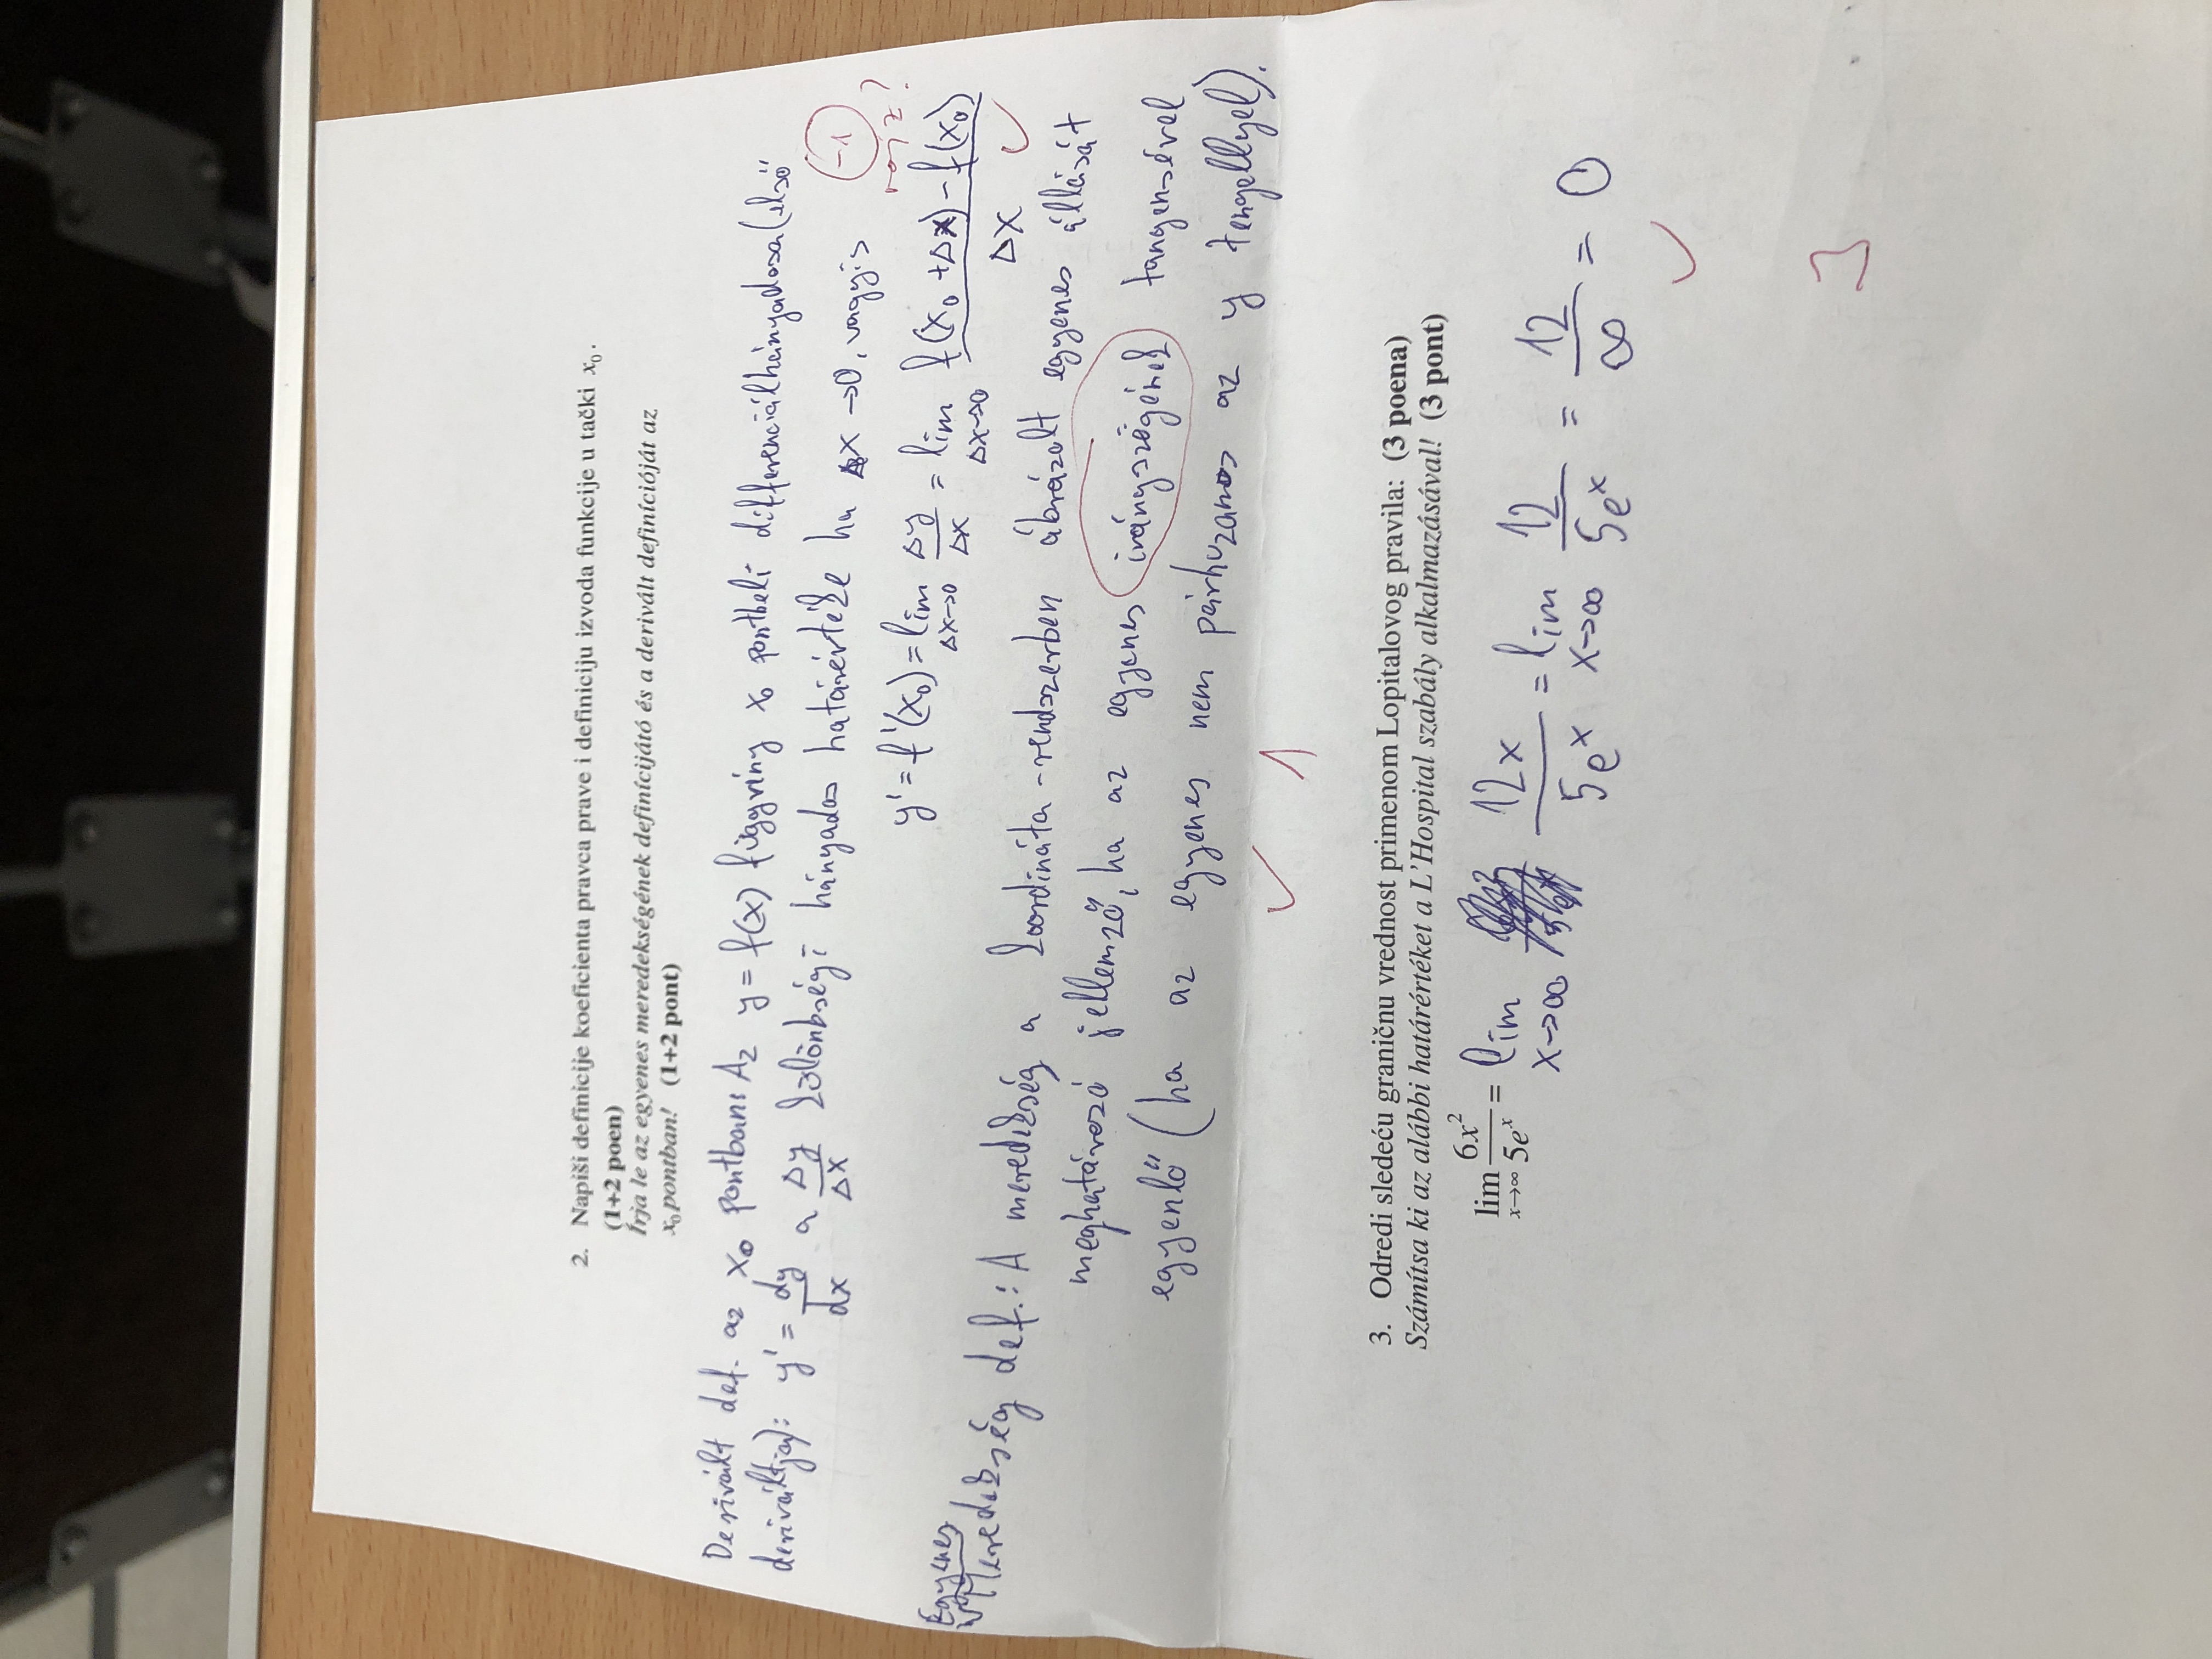 2. Napiši definicije koeficienta pravca prave i definiciju izvoda funkcije u tački x₀.
(1+2 poen)
Írja le az egyenes meredekségének definícijátó és a derivált definícióját az
x₀ pontban! (1+2 pont)
Derivált def. az x₀ pontban: Az y = f(x) függvény x₀ pontbeli differenciálhányadosa (első
deriváltja): y' = dy/dx a Δy/Δx különbségi hányados határértéke ha Δx → 0, vagyis
-1
rajz?
y' = f'(x₀) = lim Δx→0 Δy/Δx = lim Δx→0 (f(x₀ + Δx) - f(x₀))/Δx ✓
Egyenes
Meredekség def.: A meredekség a koordináta-rendszerben ábrázolt egyenes állását
meghatározó jellemző, ha az egyenes irányszögének tangensével
egyenlő (ha az egyenes nem párhuzamos az y tengellyel).
✓ 1
3. Odredi sledeću graničnu vrednost primenom Lopitalovog pravila: (3 poena)
Számítsa ki az alábbi határértéket a L'Hospital szabály alkalmazásával! (3 pont)
lim x→∞ 6x²/5eˣ = lim x→∞ 12x/5eˣ = lim x→∞ 12/5eˣ = 12/∞ = 0
✓
3